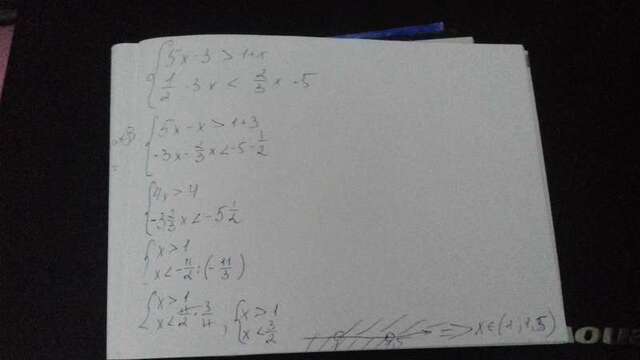 5x - 3 > 1+x
1/2 - 3x < 2/3 x - 5
5x - x > 1+3
-3x - 2/3 x < -5 - 1/2
4x > 4
-3 2/3 x < -5 1/2
x > 1
x < -11/2 : (-11/3)
x > 1
x < 11/2 · 3/11 ; x > 1
x < 3/2
=> x ∈ (1; 1,5)